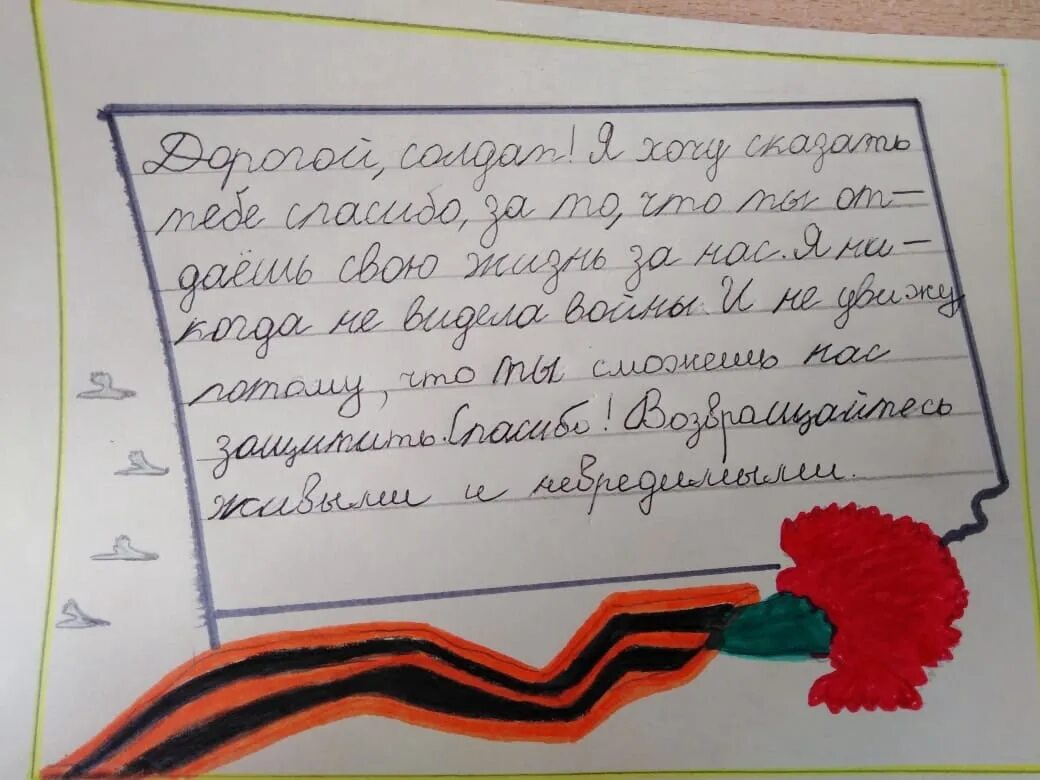 Дорогой, солдат! Я хочу сказать
тебе спасибо, за то, что ты от-
даёшь свою жизнь за нас. Я ни-
когда не видела войны. И не увижу
потому, что ты сможешь нас
защитить. Спасибо! Возвращайтесь
живыми и невредимыми.